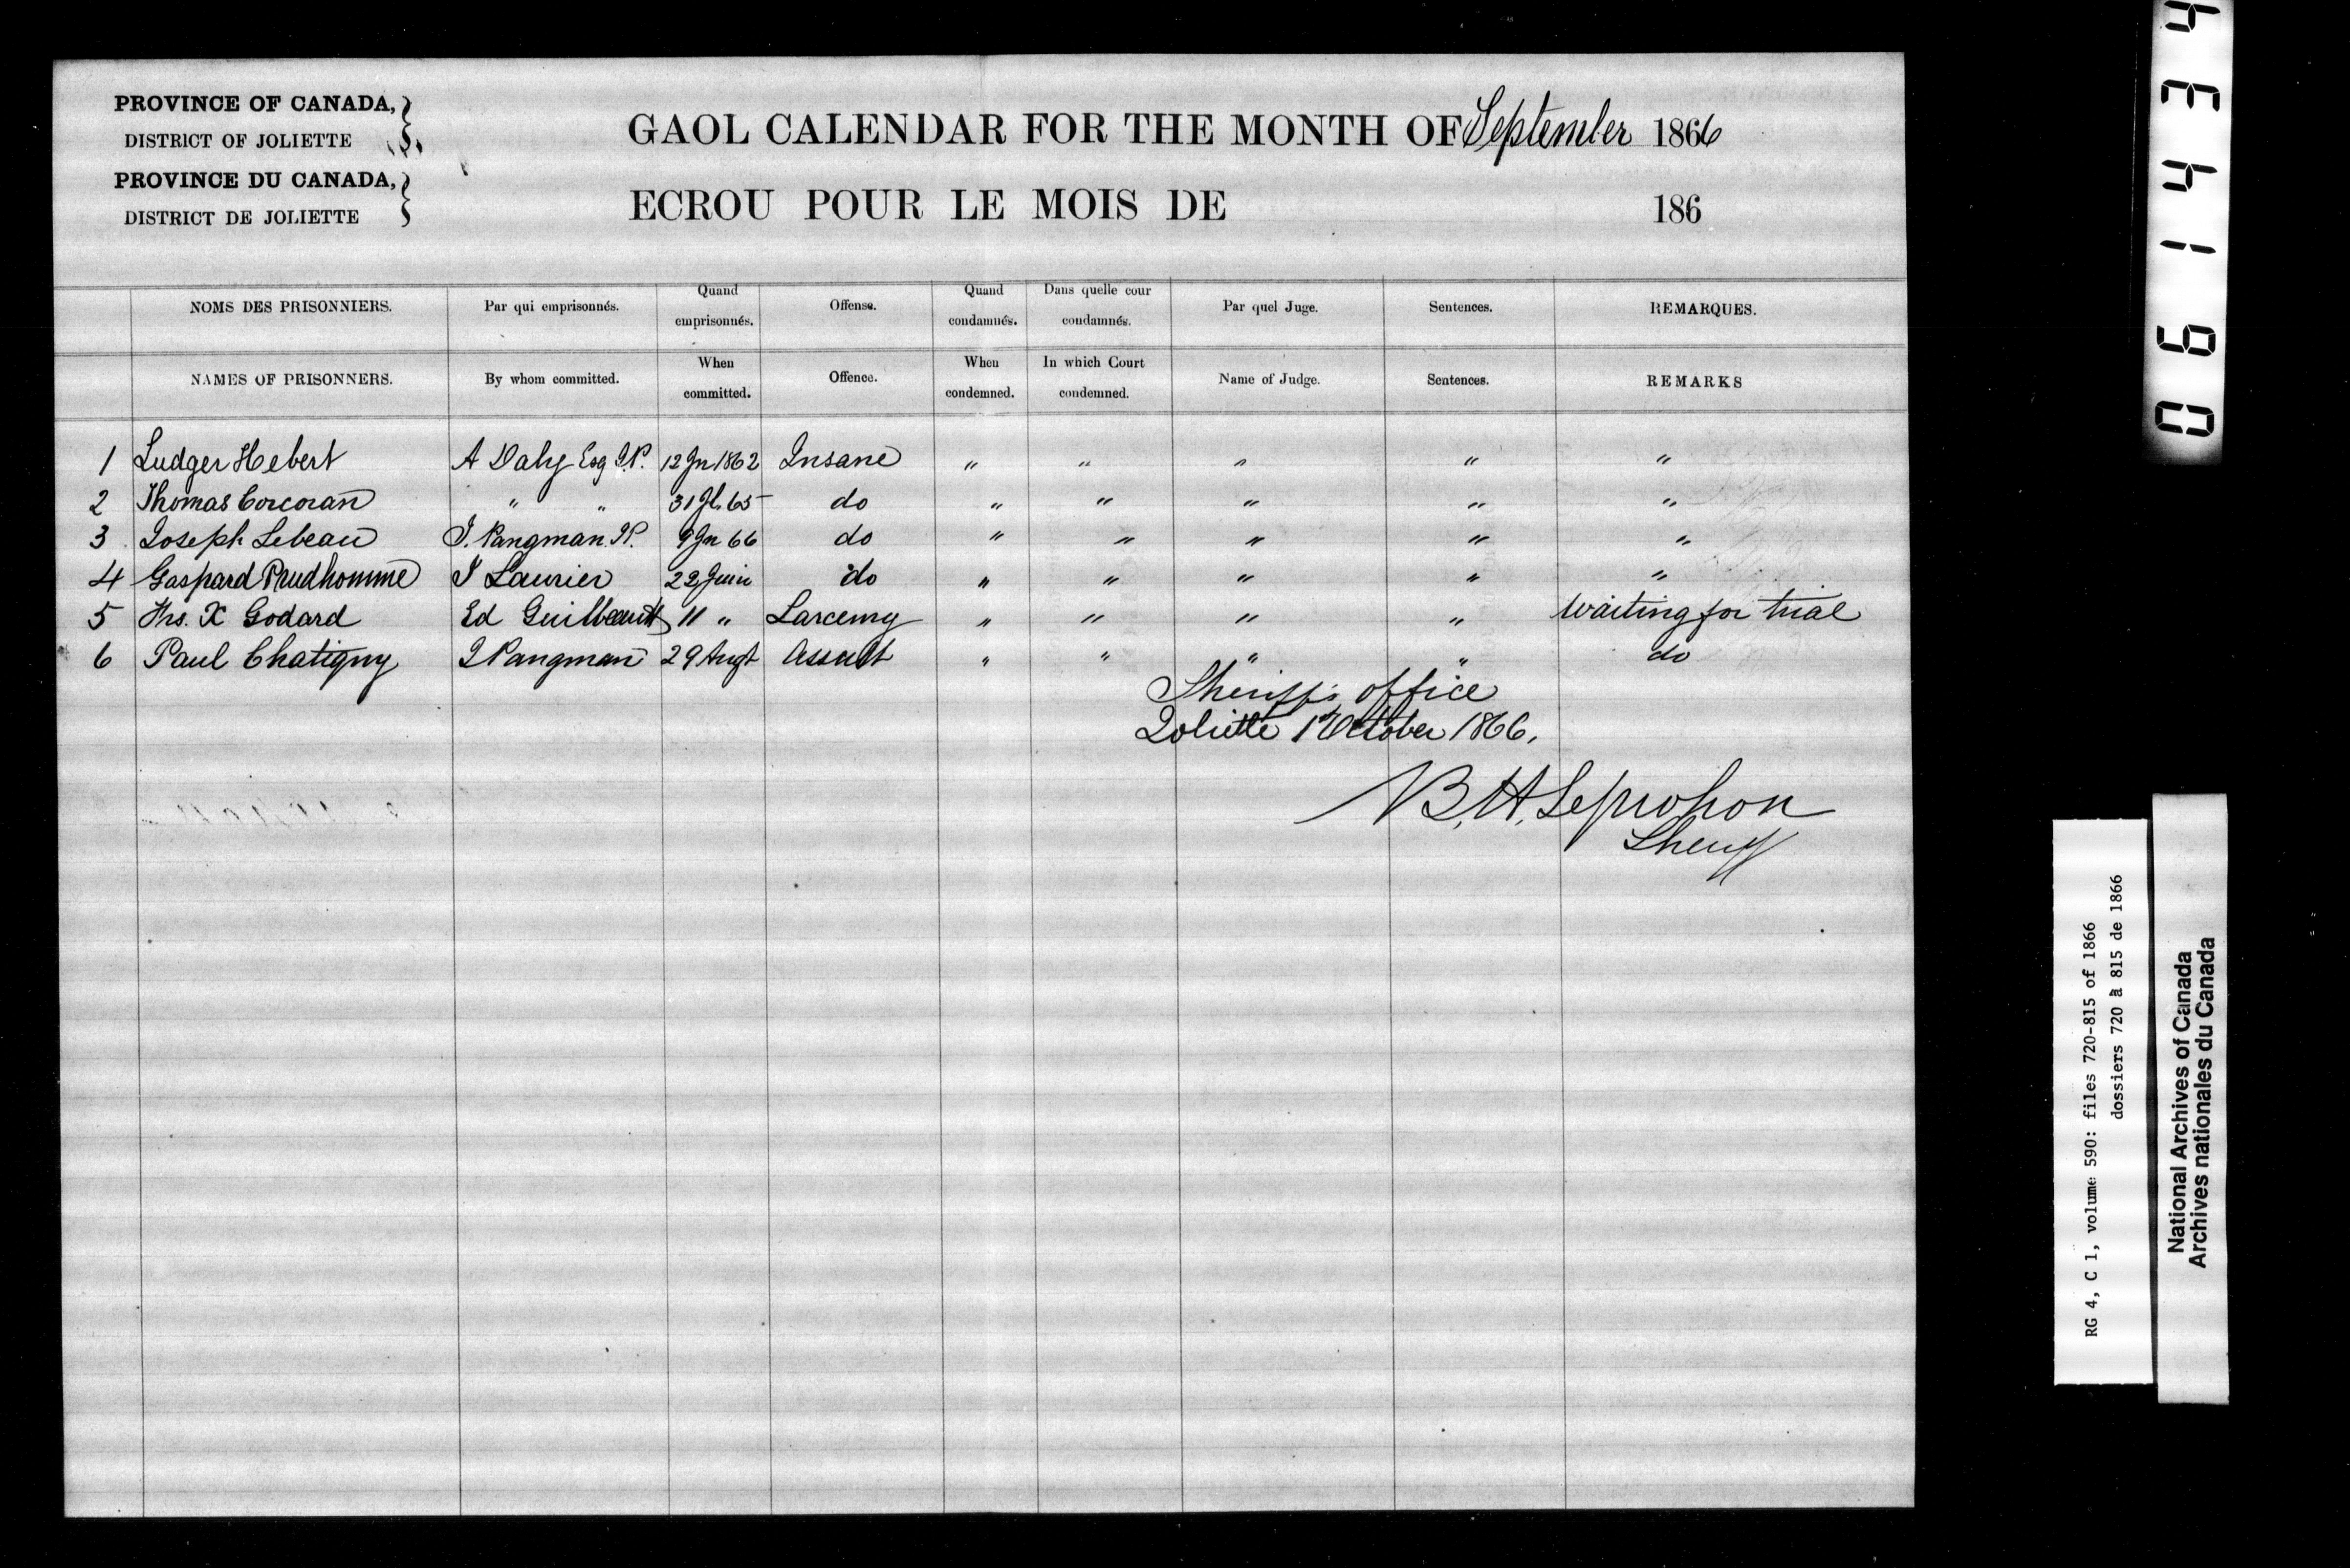 PROVINCE OF CANADA,
DISTRICT OF JOLIETTE
PROVINCE DU CANADA,
DISTRICT DE JOLIETTE
GAOL CALENDAR FOR THE MONTH OF September 1866
ECROU POUR LE MOIS DE 186
NOMS DES PRISONNIERS. Par qui emprisonnés. Quand emprisonnés. Offense. Quand condamnés. Dans quelle cour condamnés. Par quel Juge. Sentences. REMARQUES.
NAMES OF PRISONNERS. By whom committed. When committed. Offence. When condemned. In which Court condemned. Name of Judge. Sentences. REMARKS
1 Ludger Hebert A Daly Esq J.P. 12 Jn 1862 Insane " " " " "
2 Thomas Corcoran " " 31 Jl. 65 do " " " " "
3 Joseph Lebeau J. Pangman J.P. 9 Jn 66 do " " " " "
4 Gaspard Prudhomme J Laurier 22 Juin do " " " " "
5 Frs. X Godard Ed Guilbeault 11 " Larceny " " " " Waiting for trial
6 Paul Chatigny J Pangman 29 Augt Assult " " " " do
Sheriff's office
Joliette 1st October 1866.
B. H. Leprohon
Sheriff
061434
RG 4, C 1, volume 590: files 720-815 of 1866
dossiers 720 à 815 de 1866
National Archives of Canada
Archives nationales du Canada